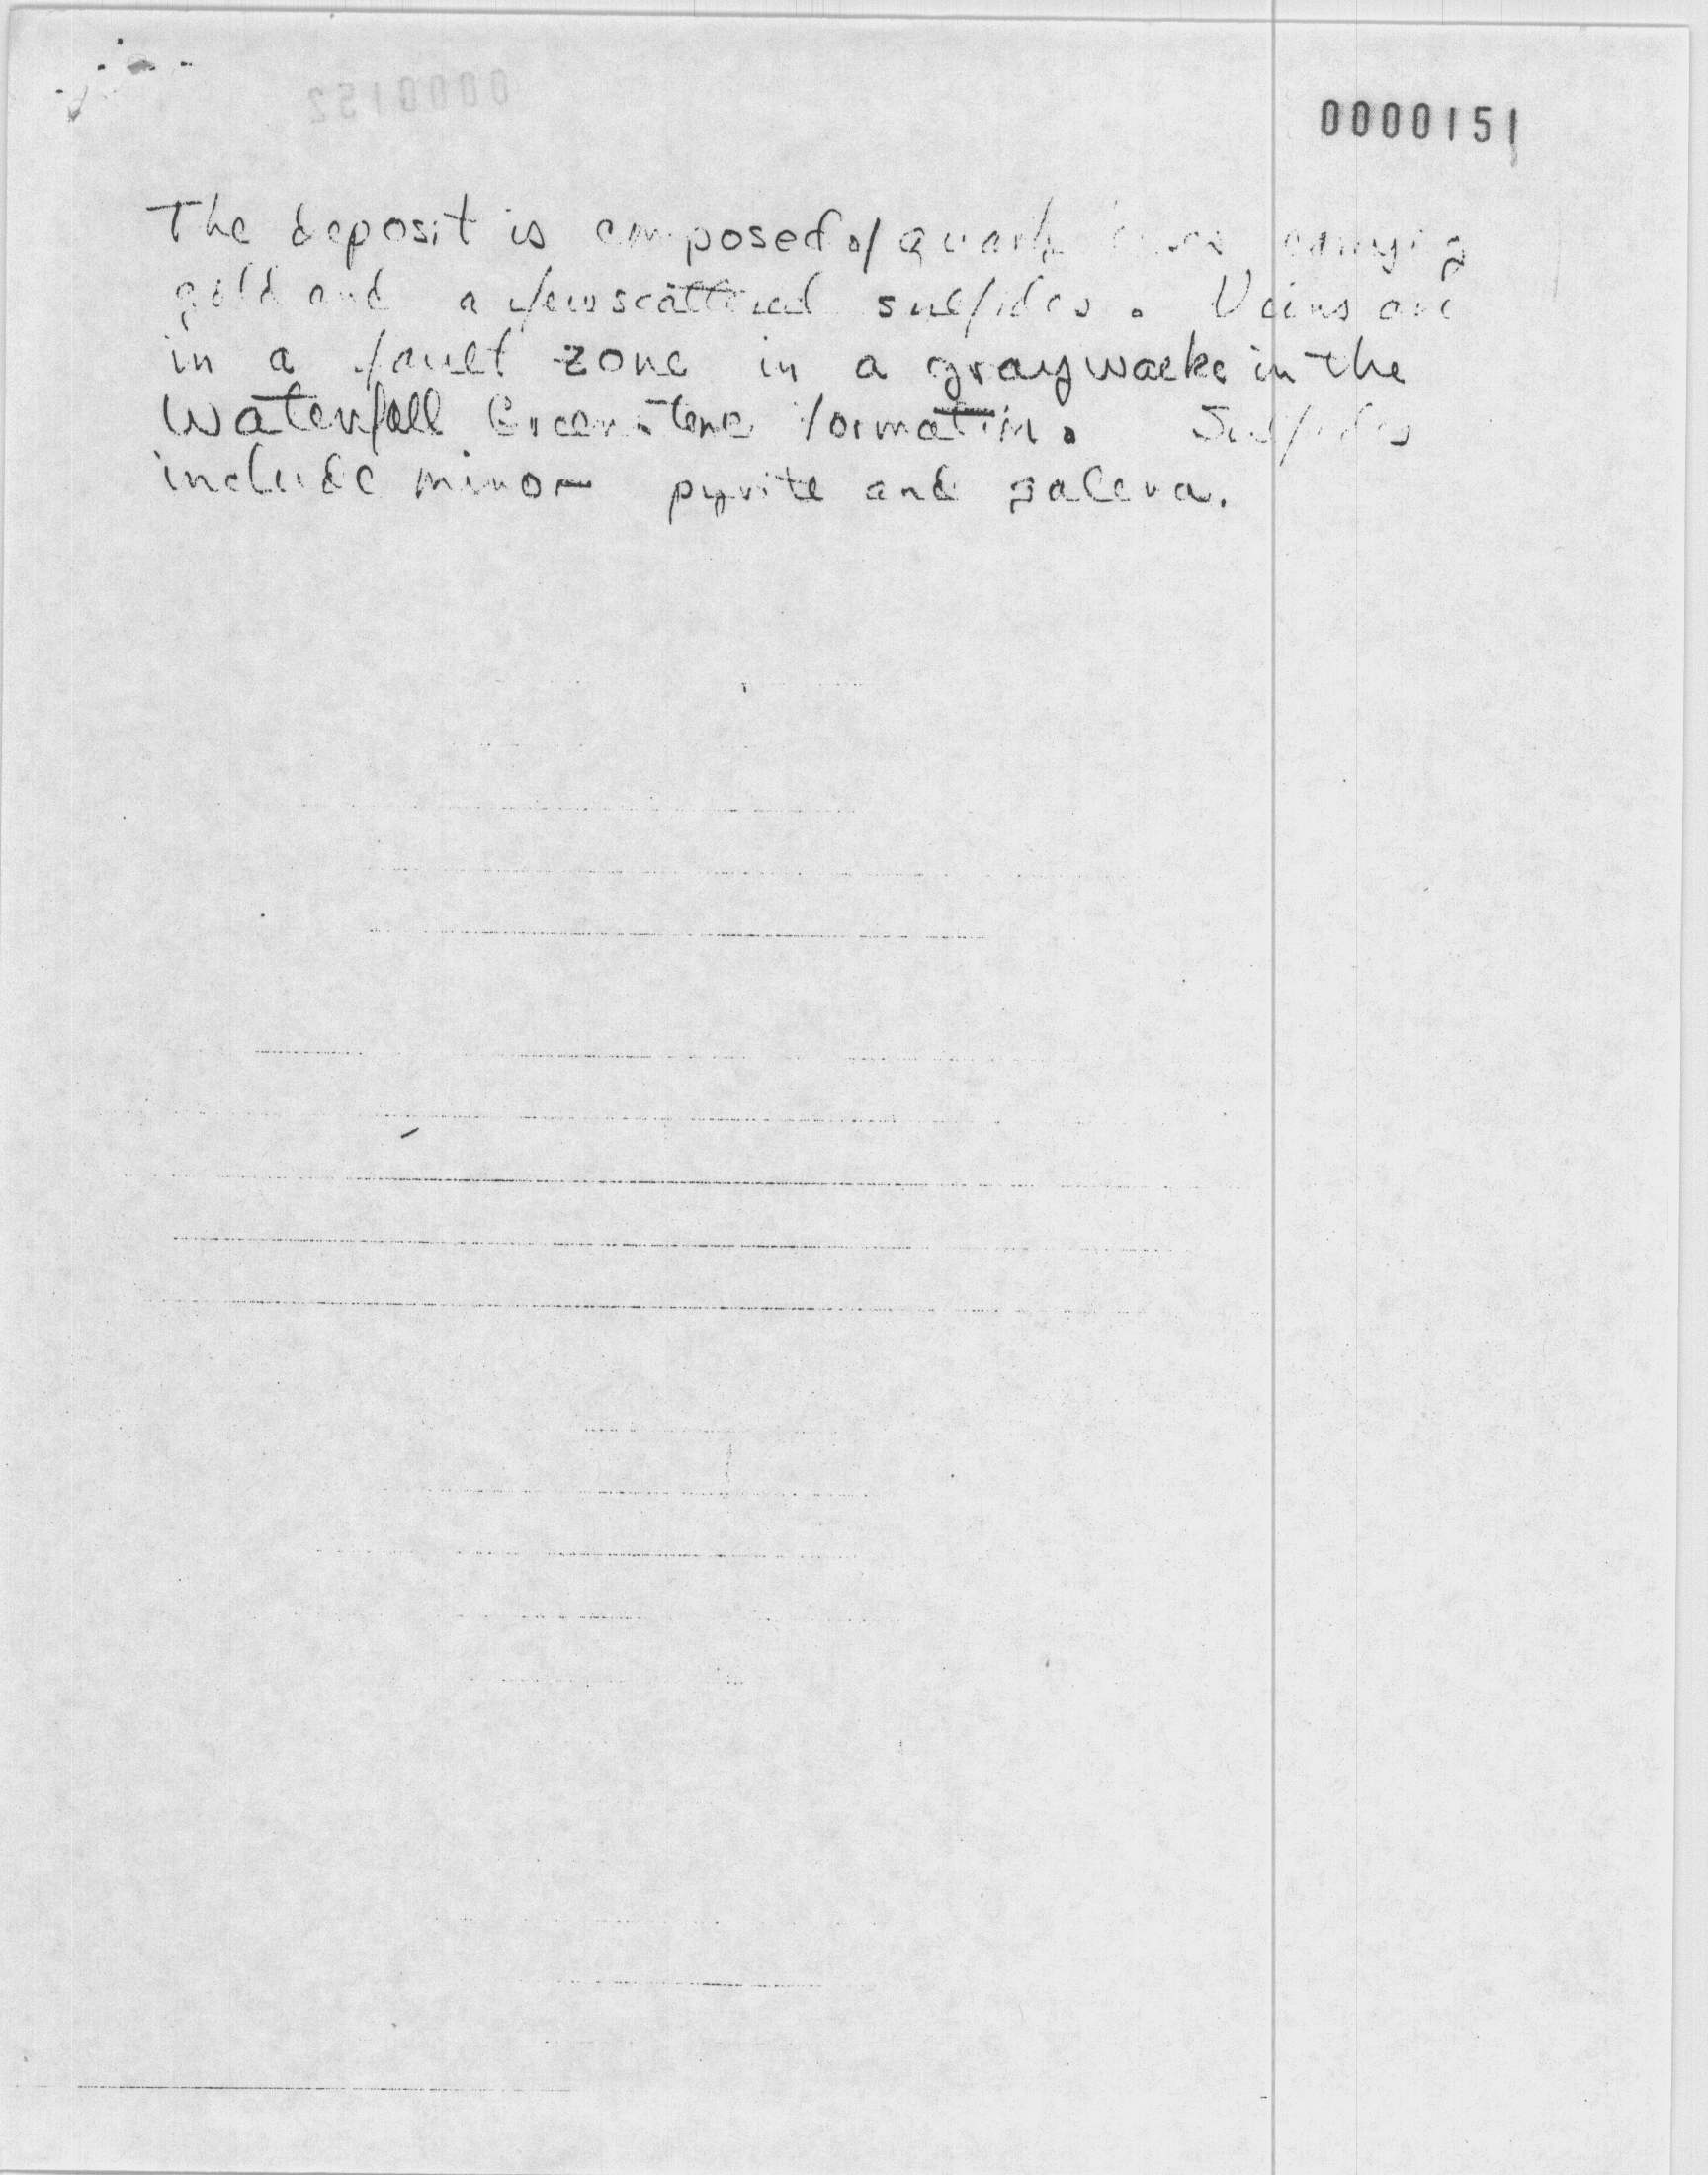 0000152
0000151
The deposit is composed of quartz carrying
gold and a few scattered sulfides. Veins are
in a fault zone in a graywacke in the
Waterfall Greenstone formation. Sulfides
include minor pyrite and galena.